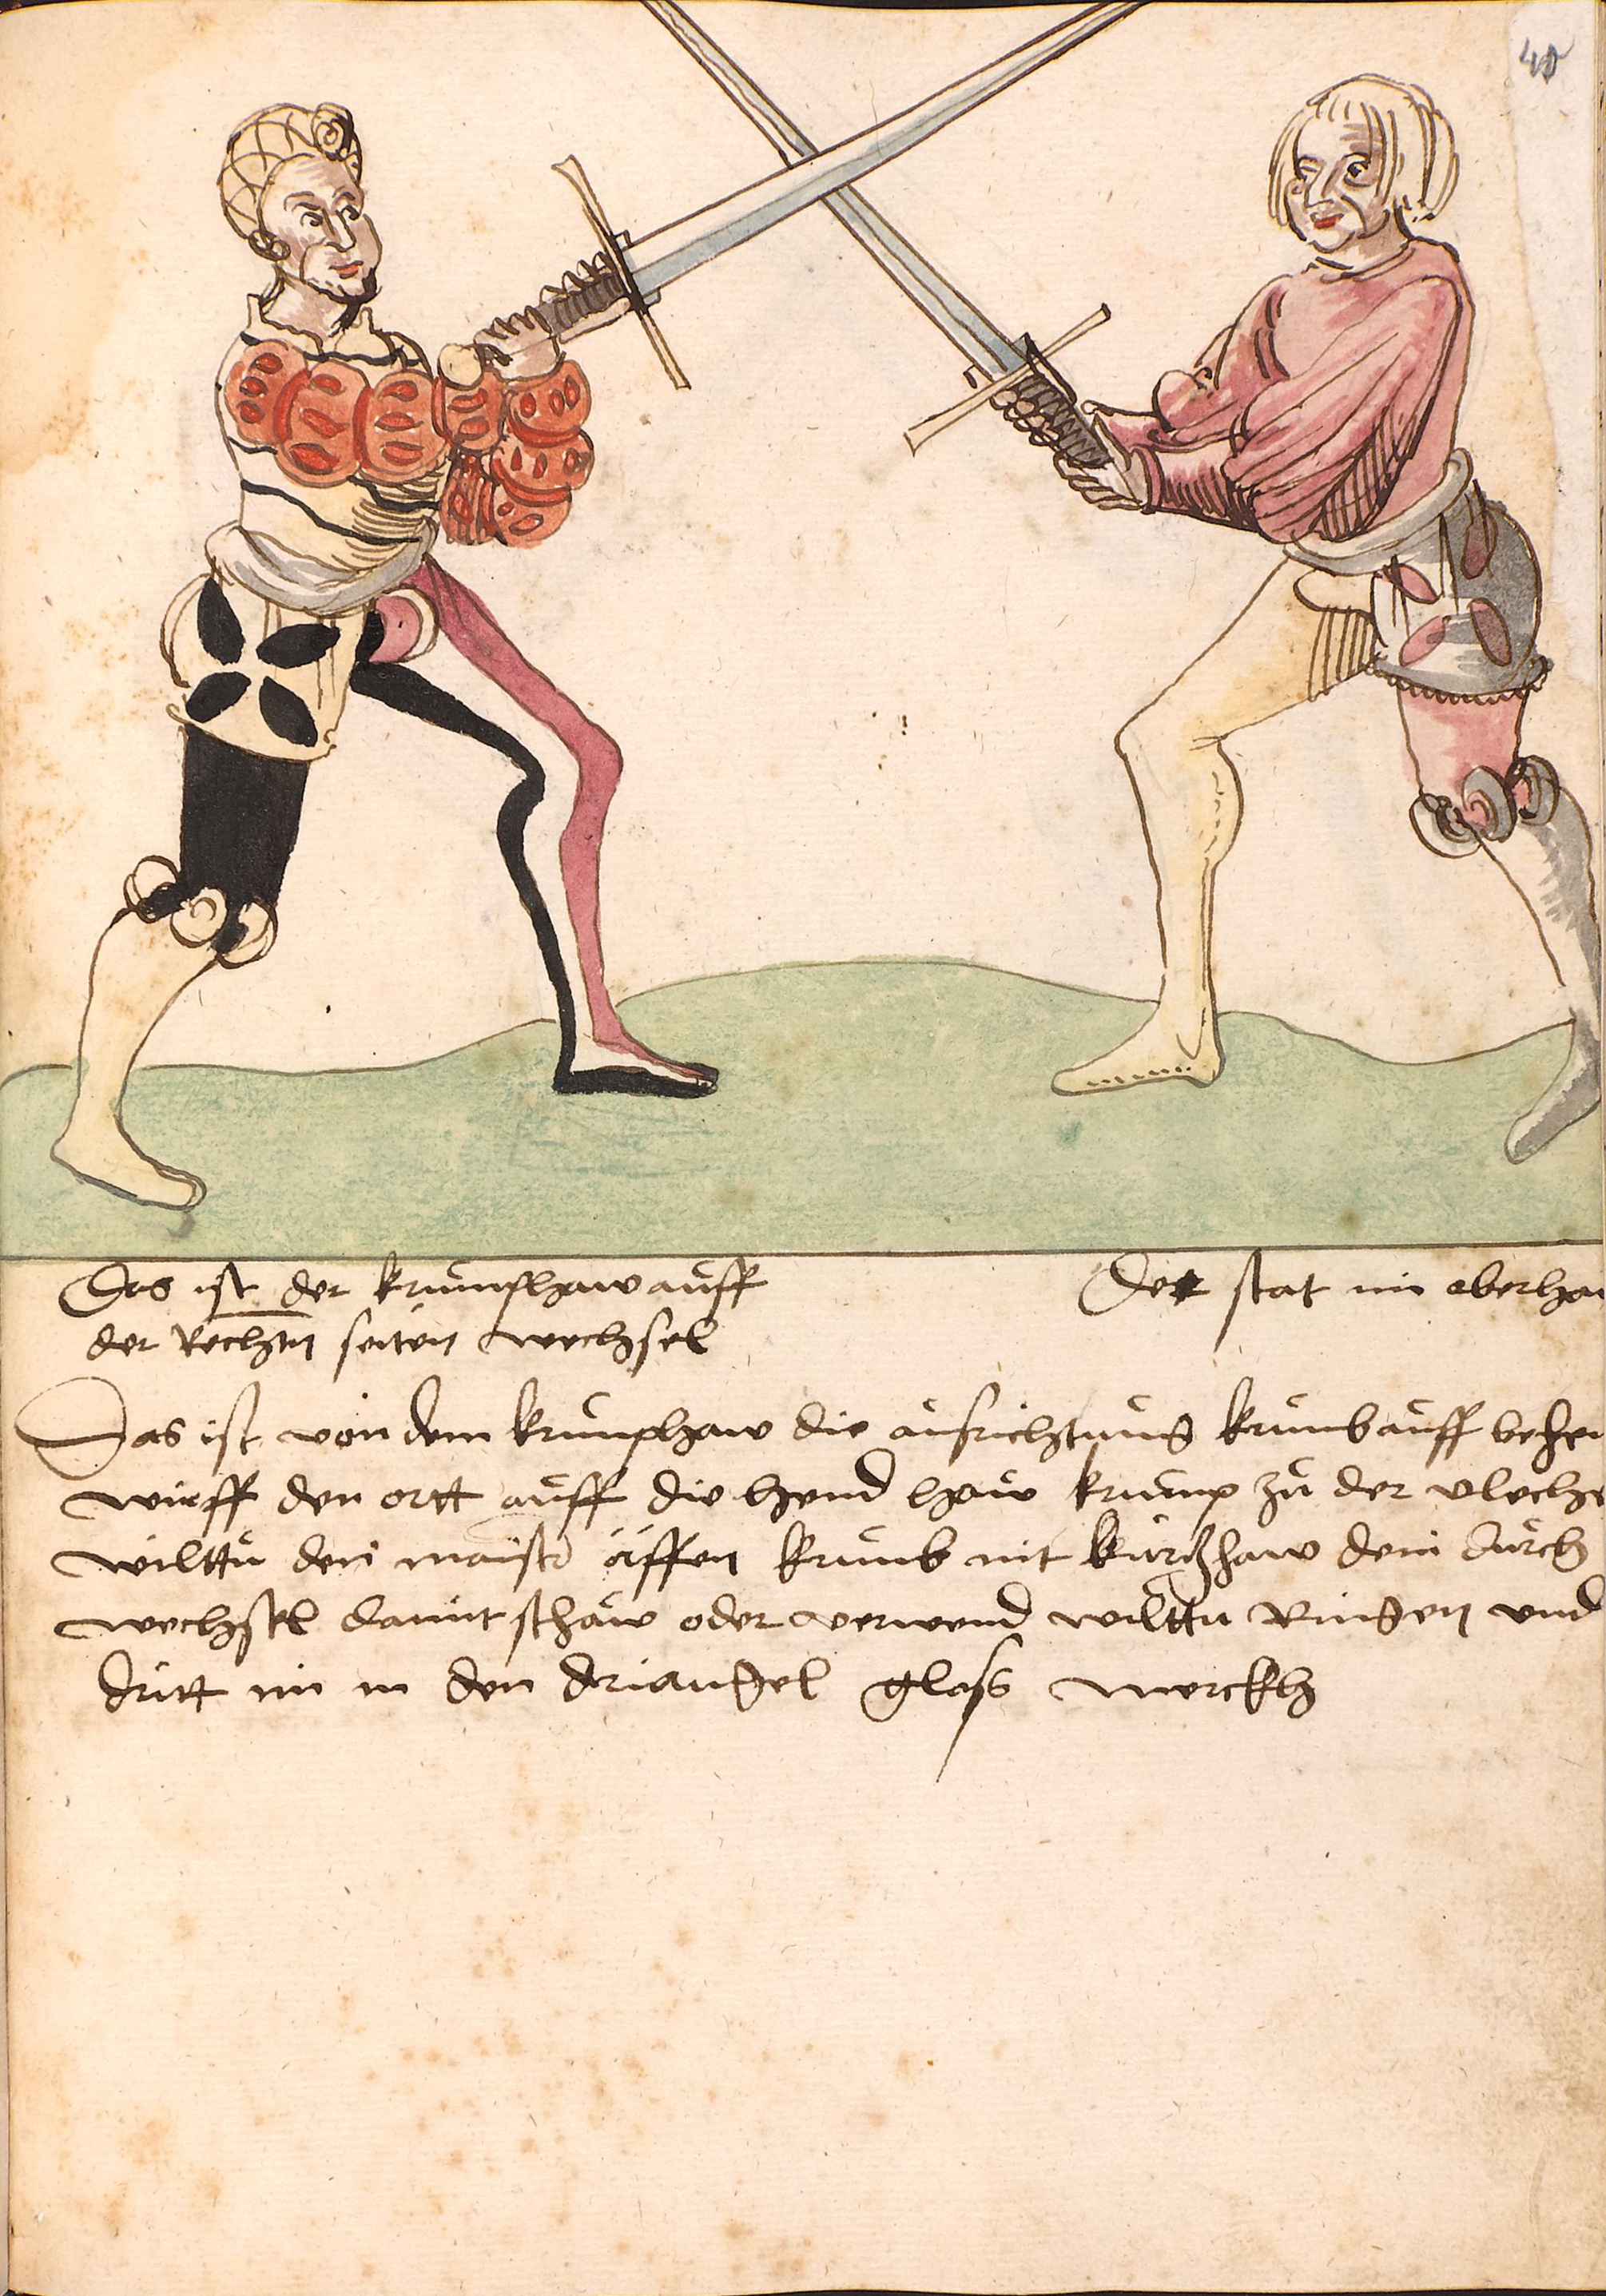 40
Das ist der krumphaw auff
der Rechtn seiten wechsel
Der stat im oberhau
Das ist von dem krumphaw die aufrichtung krumb auff behen
wirff den ortt auff die hend haw krump zu der vleche
wilttu den maister äffen krumb nit kurtzhaw dein durch
wechssel damit schaw oder verwend wilttu Ringen vnd
dritt im in den driangel glass merckh